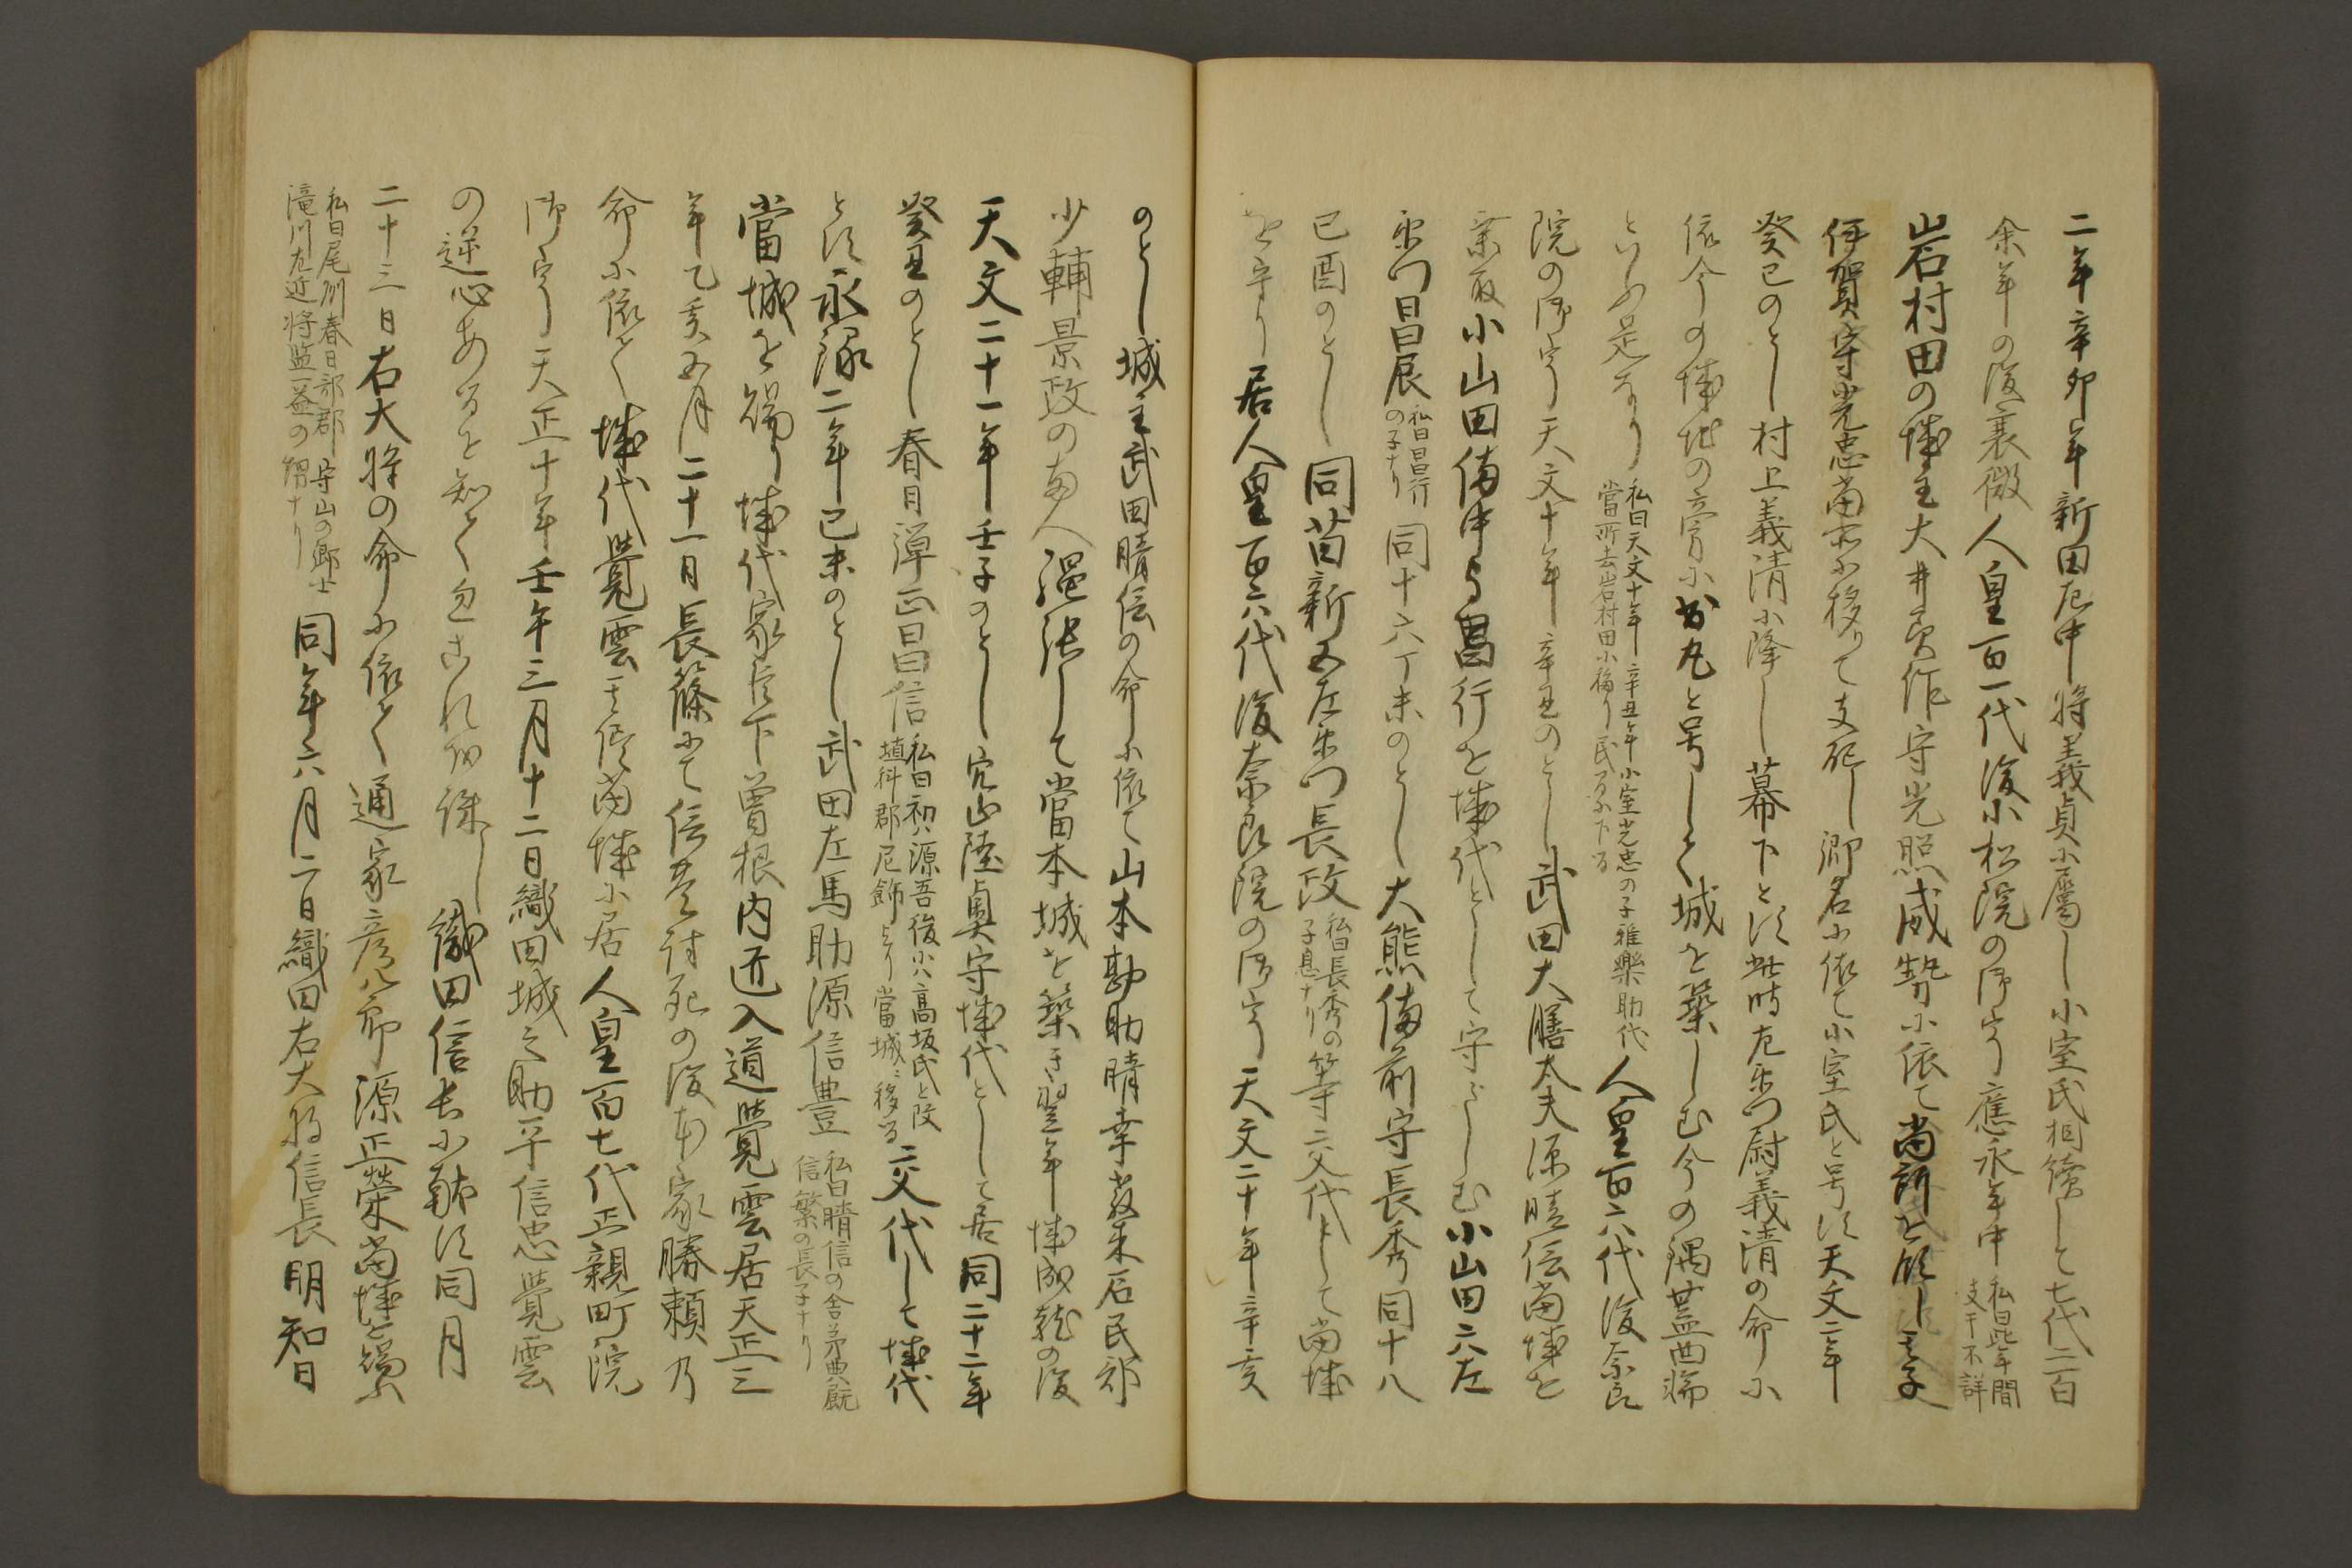 二年辛卯年新田左中将義貞小属し小室氏相續して七代二百
余年の後衰微人皇百一代後小松院の御宇應永年中私曰此年間
支干不詳
岩村田の城主大井美作守光照威勢小依て當所を領し其子
伊賀守光忠當所小移りて支配し郷名小依て小室氏と号須天文二年
癸巳のとし村上義清小降し幕下と須此時左衛門尉義清の命小
依今の城地の旁小お丸と号しく城を築しむ今の隅蓋西端
といふ是なり私曰天文十年辛丑年小室光忠の子雅樂助代
當所去岩村田小移り民間小下る人皇百六代後奈良
院の御宇天文十年辛丑のとし武田大膳太夫源晴信當城を
乗取小山田備中守昌行を城代として守らしむ小山田六左
衛門昌辰私曰昌行
の子なり同十六丁未のとし大熊備前守長秀同十八
己酉のとし同苗新五左衛門長政私曰長秀の
子息ナリ等交代して當城
を守り居人皇百六代後奈良院の御宇天文二十年辛亥
のとし城主武田晴信の命小依て山本勘助晴幸 石民部
少輔景政の両人縄張して當本城を築き翌年城成就の後
天文二十一年壬子のとし穴山陸奥守城代として居同二十二年
癸丑のとし春日弾正昌信私曰初ハ源吾後小ハ高坂氏と改
埴科郡尼飾より當城ニ移る二交代して城代
と須永禄二年己未のとし武田左馬助源信豊私曰晴信の舎弟典厩
信繁の長子ナリ
當城を賜り城代家臣下曽根内匠入道覺雲居天正三
年乙亥五月二十一日長篠にて信豊討死の後本家勝頼乃
命小依く城代覺雲其侭當城小居人皇百七代正親町院
御宇天正十年壬午三月十二日織田城之助平信忠覺雲
の逆心あるを知く忽これを誅し織田信長小献須同月
二十三日右大将の命小依く通家彦八郎源正榮當城を賜ふ
私曰尾州春日部郡守山の郷士
滝川左近将監一益の甥ナリ同年六月二日織田右大将信長明智日